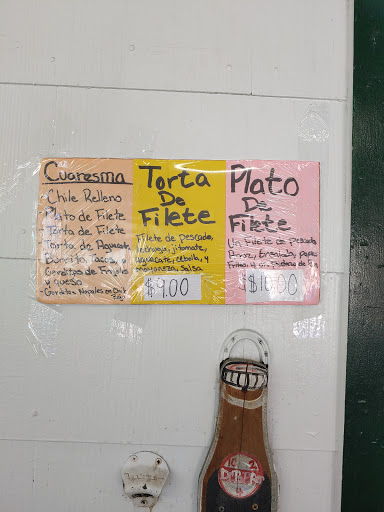 Cuaresma
- Chile Relleno
- Plato de Filete
- Torta de Filete
- Torta de Aguacate
- Burrito, Tacos, o
Gorditas de Frijole
y queso
Torta
De
Filete
Filete de pescado,
jitomate,
aguacate, cebolla, y
mayonesa, salsa
$9.00
Plato
De
Filete
Un Filete de Pescado
Arroz, Ensalada, papas
$10.00